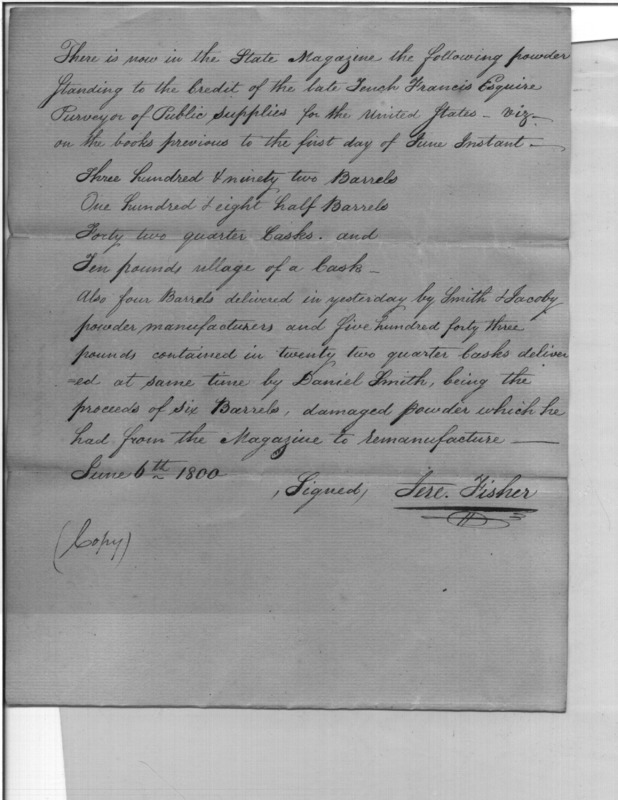 There is now in the State Magazine the following powder
Standing to the Credit of the late Tench Francis Esquire
Purveyor of Public Supplies for the United States – viz –
on the books previous to the first day of June Instant –
Three hundred & ninety two Barrels
One hundred & eight half Barrels
Forty two quarter Casks. and
Ten pounds ullage of a Cask –
Also four Barrels delivered in yesterday by Smith & Jacoby
powder manufacturers and five hundred forty three
pounds contained in twenty two quarter Casks deliver
=ed at same time by Daniel Smith, being the
proceeds of six Barrels, damaged powder which he
had from the Magazine to remanufacture —
June 6th 1800
, Signed, Jere. Fisher
(Copy)